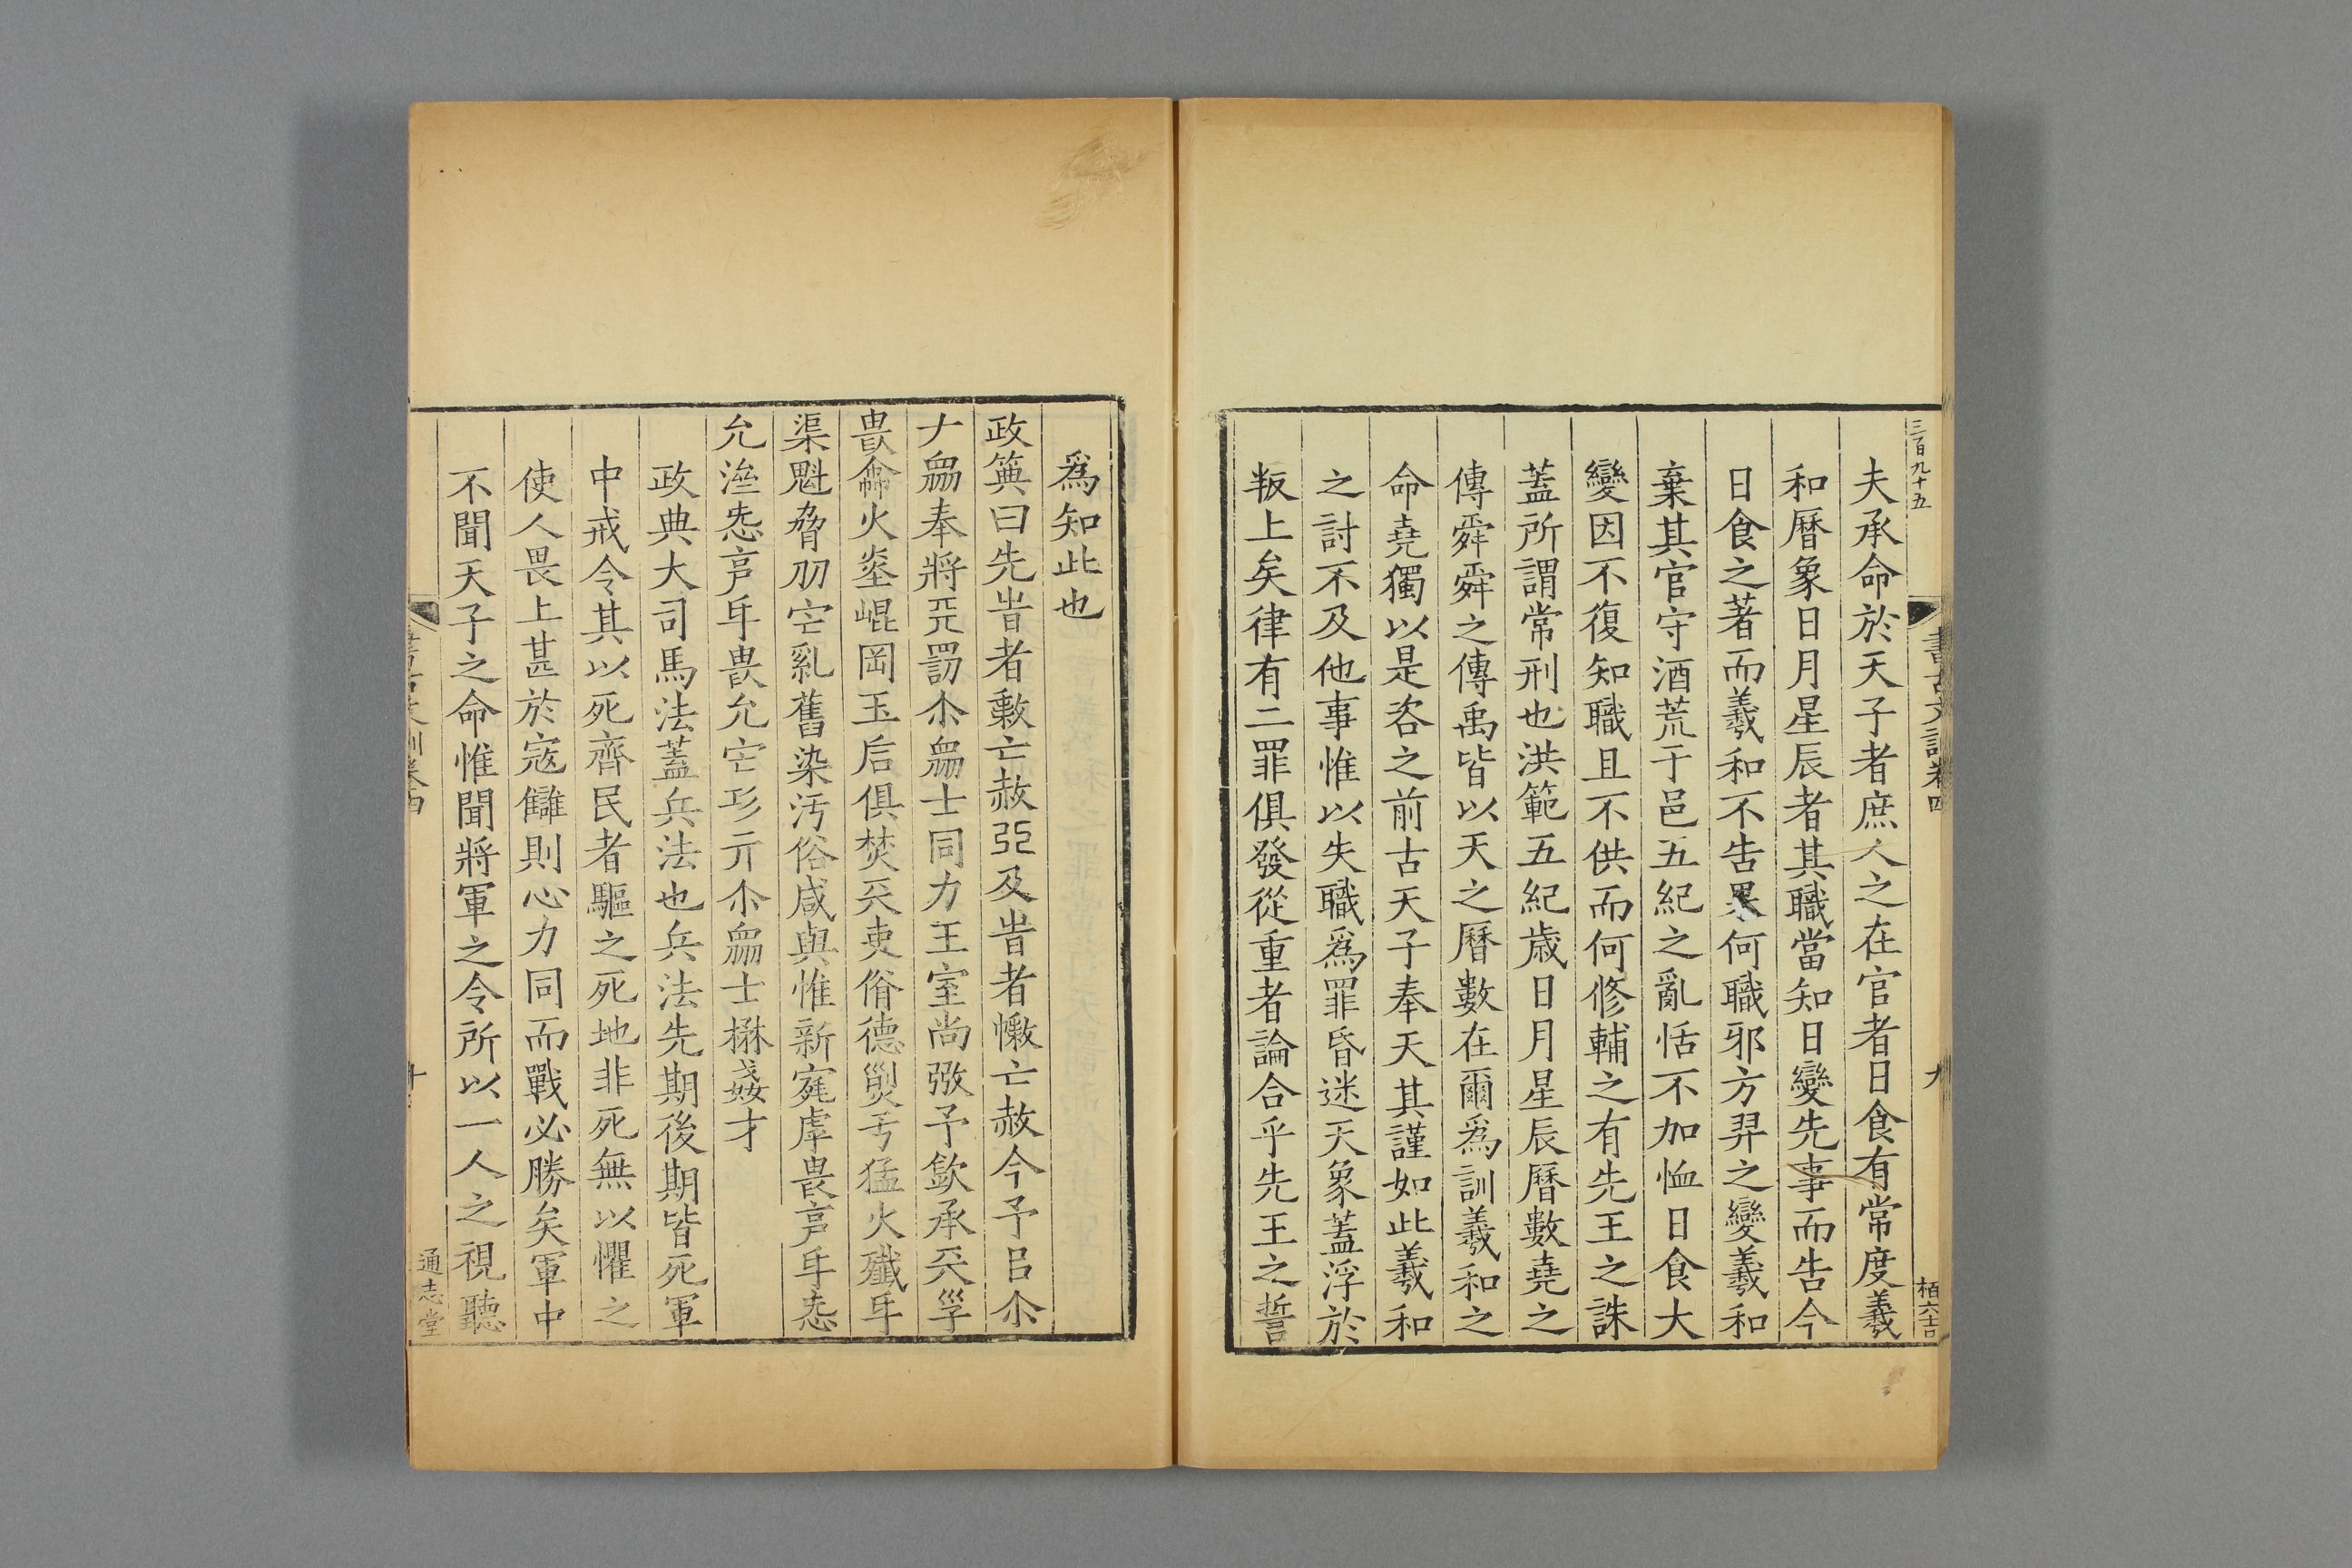 三百九十五
書古文訓卷四
九
柏六吉
夫承命於天子者庶人之在官者日食有常度羲
和曆象日月星辰者其職當知日變先事而告今
日食之著而羲和不告果何職邪方羿之變羲和
棄其官守酒荒于邑五紀之亂恬不加恤日食大
變因不復知職且不供而何修輔之有先王之誅
蓋所謂常刑也洪範五紀歲日月星辰曆數堯之
傳舜舜之傳禹皆以天之曆數在爾爲訓羲和之
命堯獨以是咨之前古天子奉天其謹如此羲和
之討不及他事惟以失職爲罪昏迷天象蓋浮於
叛上矣律有二罪俱發從重者論合乎先王之誓
爲知此也
政箕曰先旹者㪅亡赦弫及旹者懒亡赦今予㠯尒
𠂇衆奉將兲罰尒衆士同力王室尚弻予歛承兲孚
畏侖火烾崐岡玉后俱焚兲吏俏德䎡亐猛火殲氒
渠魁脅刅宅乿舊染汚俗咸與惟新寑虖畏亯氒㤅
允淦㤅亯氒畏允宅玜亓尒衆士懋㛿才
政典大司馬法蓋兵法也兵法先期後期皆死軍
中戒令其以死齊民者驅之死地非死無以懼之
使人畏上甚於寇讎則心力同而戰必勝矣軍中
不聞天子之命惟聞將軍之令所以一人之視聽
十
通志堂